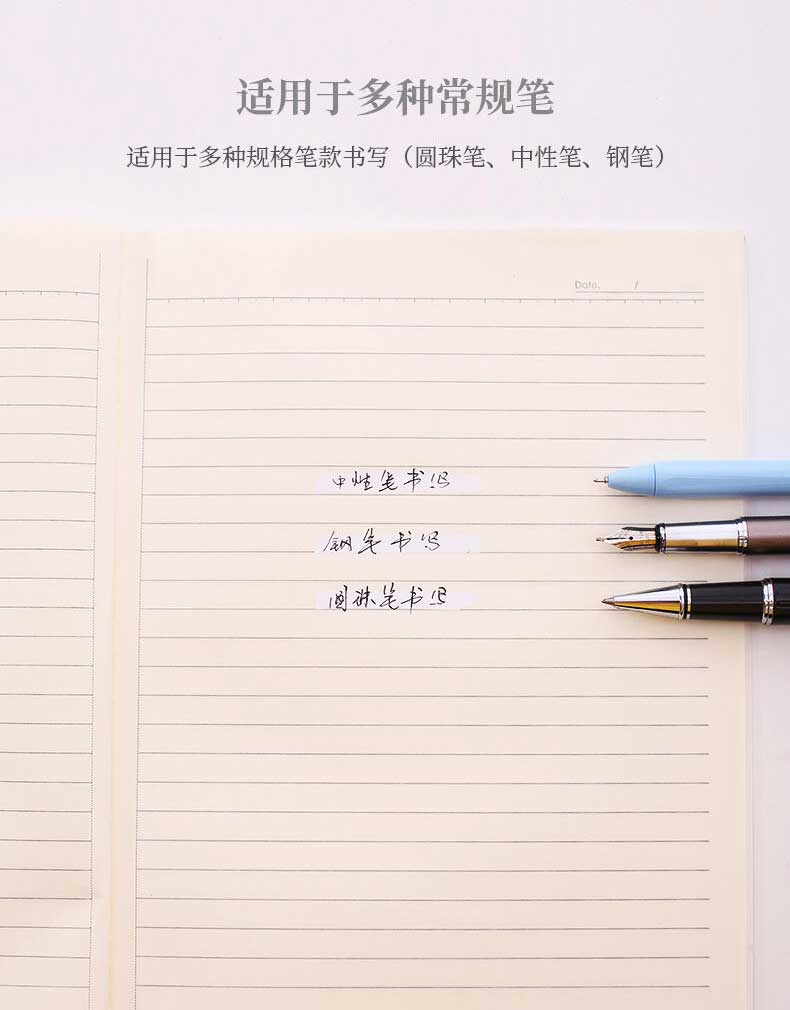 适用于多种常规笔
适用于多种规格笔款书写（圆珠笔、中性笔、钢笔）
Date. /
中性笔书写
钢笔书写
圆珠笔书写